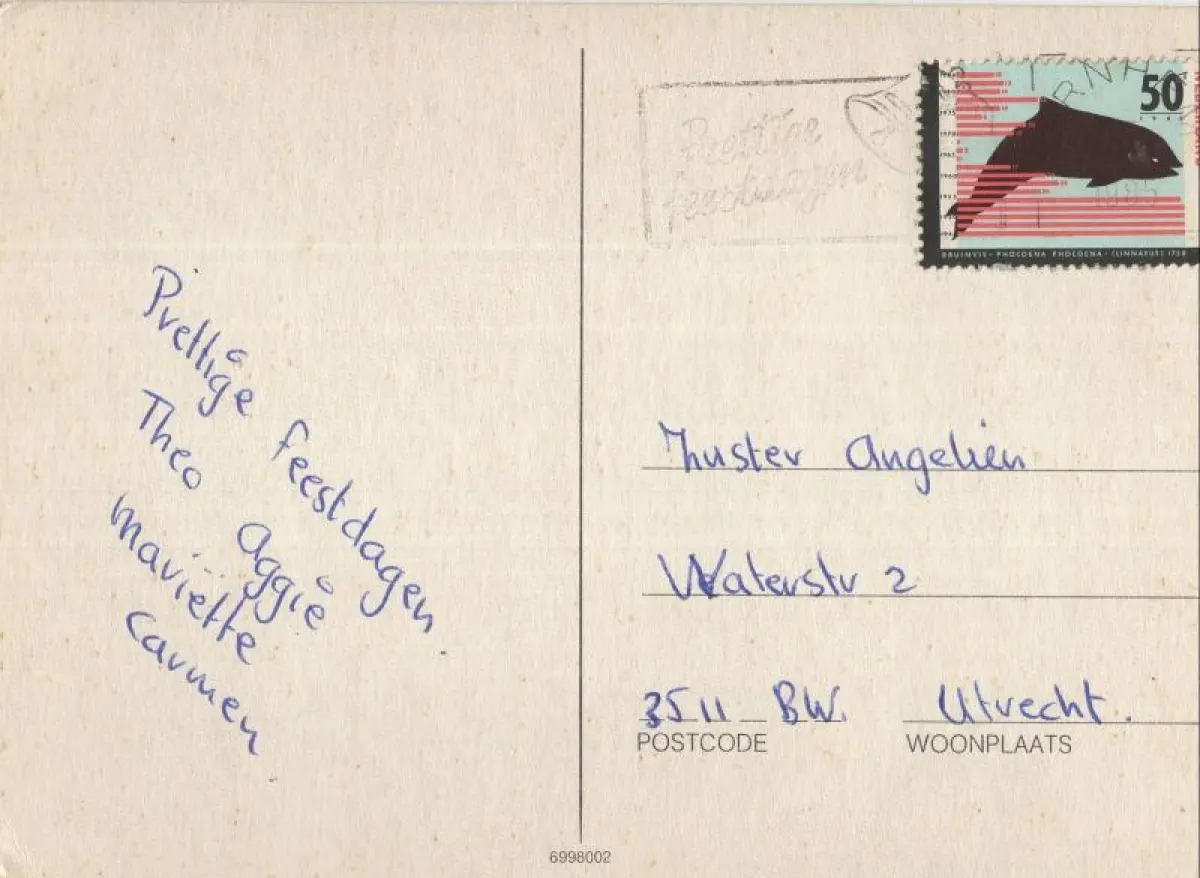 Prettige feestdagen.
Theo Aggie
Mariëtte
Carmen
Prettige
feestdagen
50
BRUINVIS - PHOCOENA PHOCOENA - (LINNAEUS) 1758
Zuster Angelien
Waterstr 2
3511 BW. Utrecht.
POSTCODE WOONPLAATS
6998002